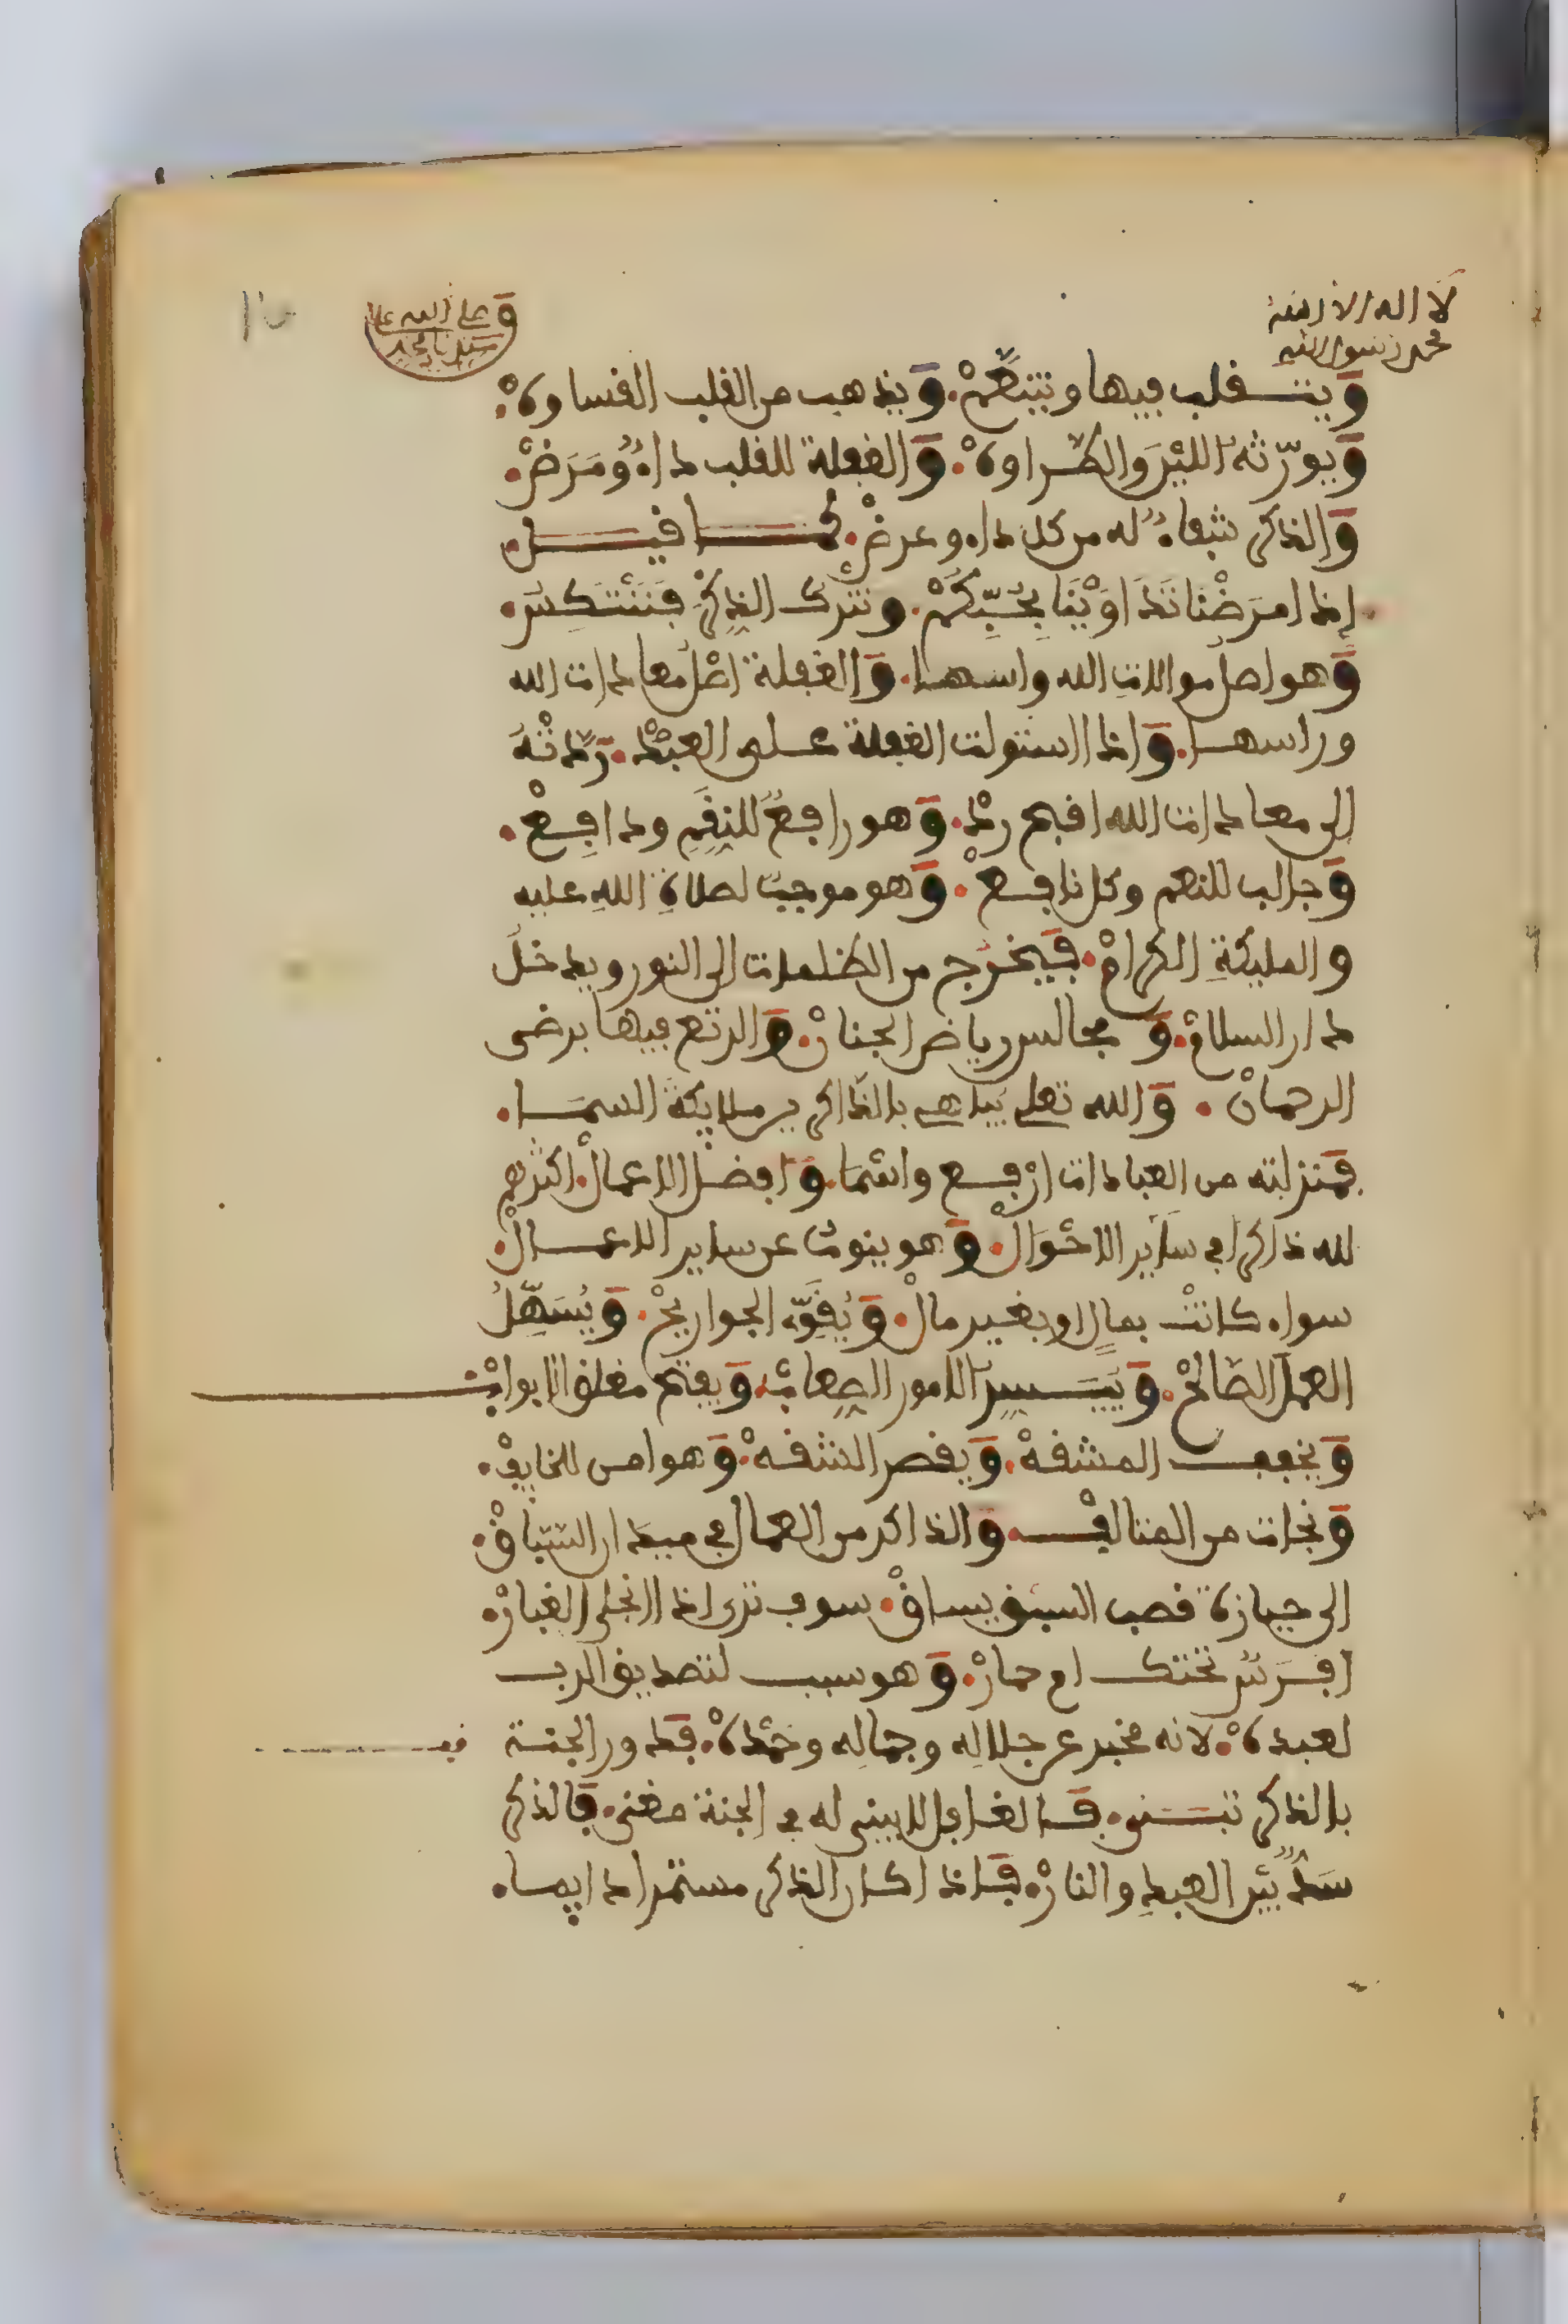 لا اله الا الله
محمد رسول الله
وَيتقلب فيها ويتنعّمْ. وَيذهب من القلب القساوةْ.
وَيورّثهُ اللّيْنَ والطّراوةْ. وَالغفلة للقلب داءٌ وُمَرَضْ.
وَالذكر شفاءٌ له من كل داء وعرضْ. كما قيل.
إذا مَرَضْنا تَدَاوَيْنَا بِحُبِّكُمْ. ونتْرك الذِكْرَ فَنَنْتَكِسُ.
وَهو اصل موالات الله واسها. وَالغفلة اصْلُ معادات الله
وراسها. وَاذا استولت الغفلة على العبْدْ. رَدَّتْهُ
إلى معادات الله اقبح ردْ. وَهو رافعٌ للنِقَمِ ودافِعْ.
وَجالب للنعم وكل نافعْ. وَهو موجبٌ لصلاةِ اللهِ عليه
والمليكةِ الكرامْ. فَيخرُج من الظلمات الى النور ويدخلُ
دار السلامْ. وَمجالس رياض الجنانْ. وَالرتع فيها برضى
الرحمانْ. وَالله تعلى يباهى بالذاكر ين ملايكةَ السمَا.
فمنزلته من العبادات ارْفع واسْمَا. وَافضل الاعمالْ. اكثرهم
لله ذاكرا في سَاير الاحْوَالْ. وَهو ينوبُ عن ساير الاعمالْ.
سواء كانتْ بمالٍ او بغير مالْ. وَيُقَوِّ الجواريحْ. وَيُسَهِّلُ
العملَ الصَالحْ. وَيُيَسِرُ الامور الصِعابْ. وَيفتح مغلق الابوابْ
وَيخفف المشقهْ. وَيقصر الشقهْ. وَهو امن للخايفْ.
وَنجات من المتالفْ. وَالذاكر من العمال في ميدان السّباقْ.
الى حيازة قصب السبق يساقْ. سوف ترى اذا انجلى الغبارْ.
افَرَسٌ تحتك ام حمارْ. وَهو سبب لتصديق الرب
لعبدهْ. لانه مخبر عن جلالِه وجمالِه وحمْدهْ. فَدور الجنة
بالذكر تبنى. فَالغافل لا يبنى له في الجنة مغنى. فَالذكر
سَدٌّ بيْن العبدِ والنارْ. فَاذا كان الذكر مستمرا دايما.